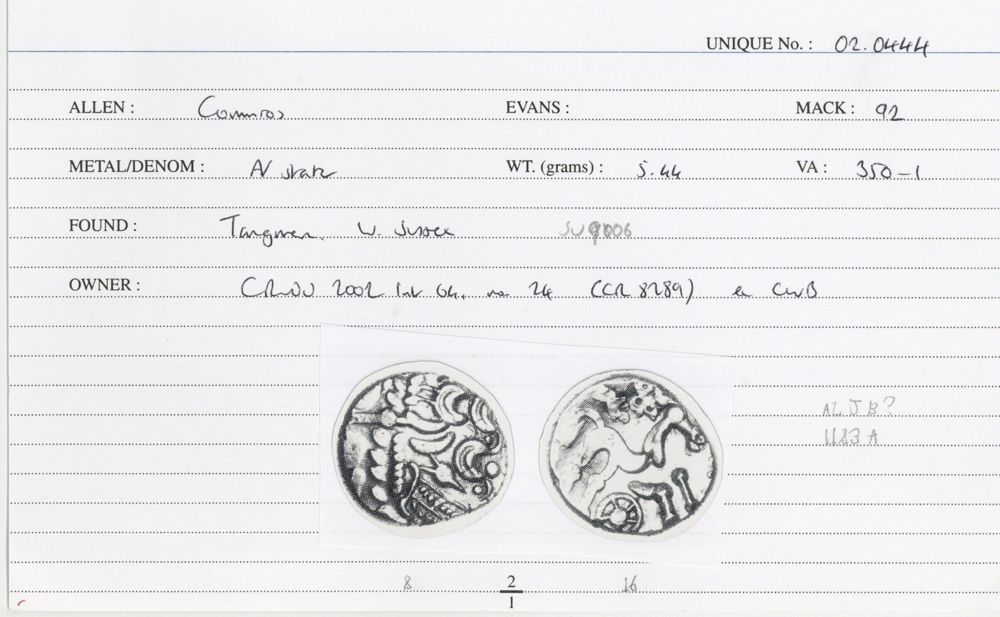 UNIQUE No. : 02.0444
ALLEN : Commios EVANS : MACK : 92
METAL/DENOM : AV stater WT. (grams) : 5.44 VA : 350-1
FOUND : Tangmere. W. Sussex SU9006
OWNER : 2002 no 24 (CCR 8289) ex CWB
AL J B?
1183 A
8 2 16
1